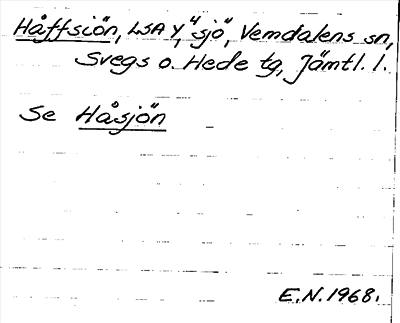 Håffsiön, LSA Y, "sjö", Vemdalens sn,
Svegs o. Hede tg, Jämtl. l.
Se Håsjön
E.N. 1968.